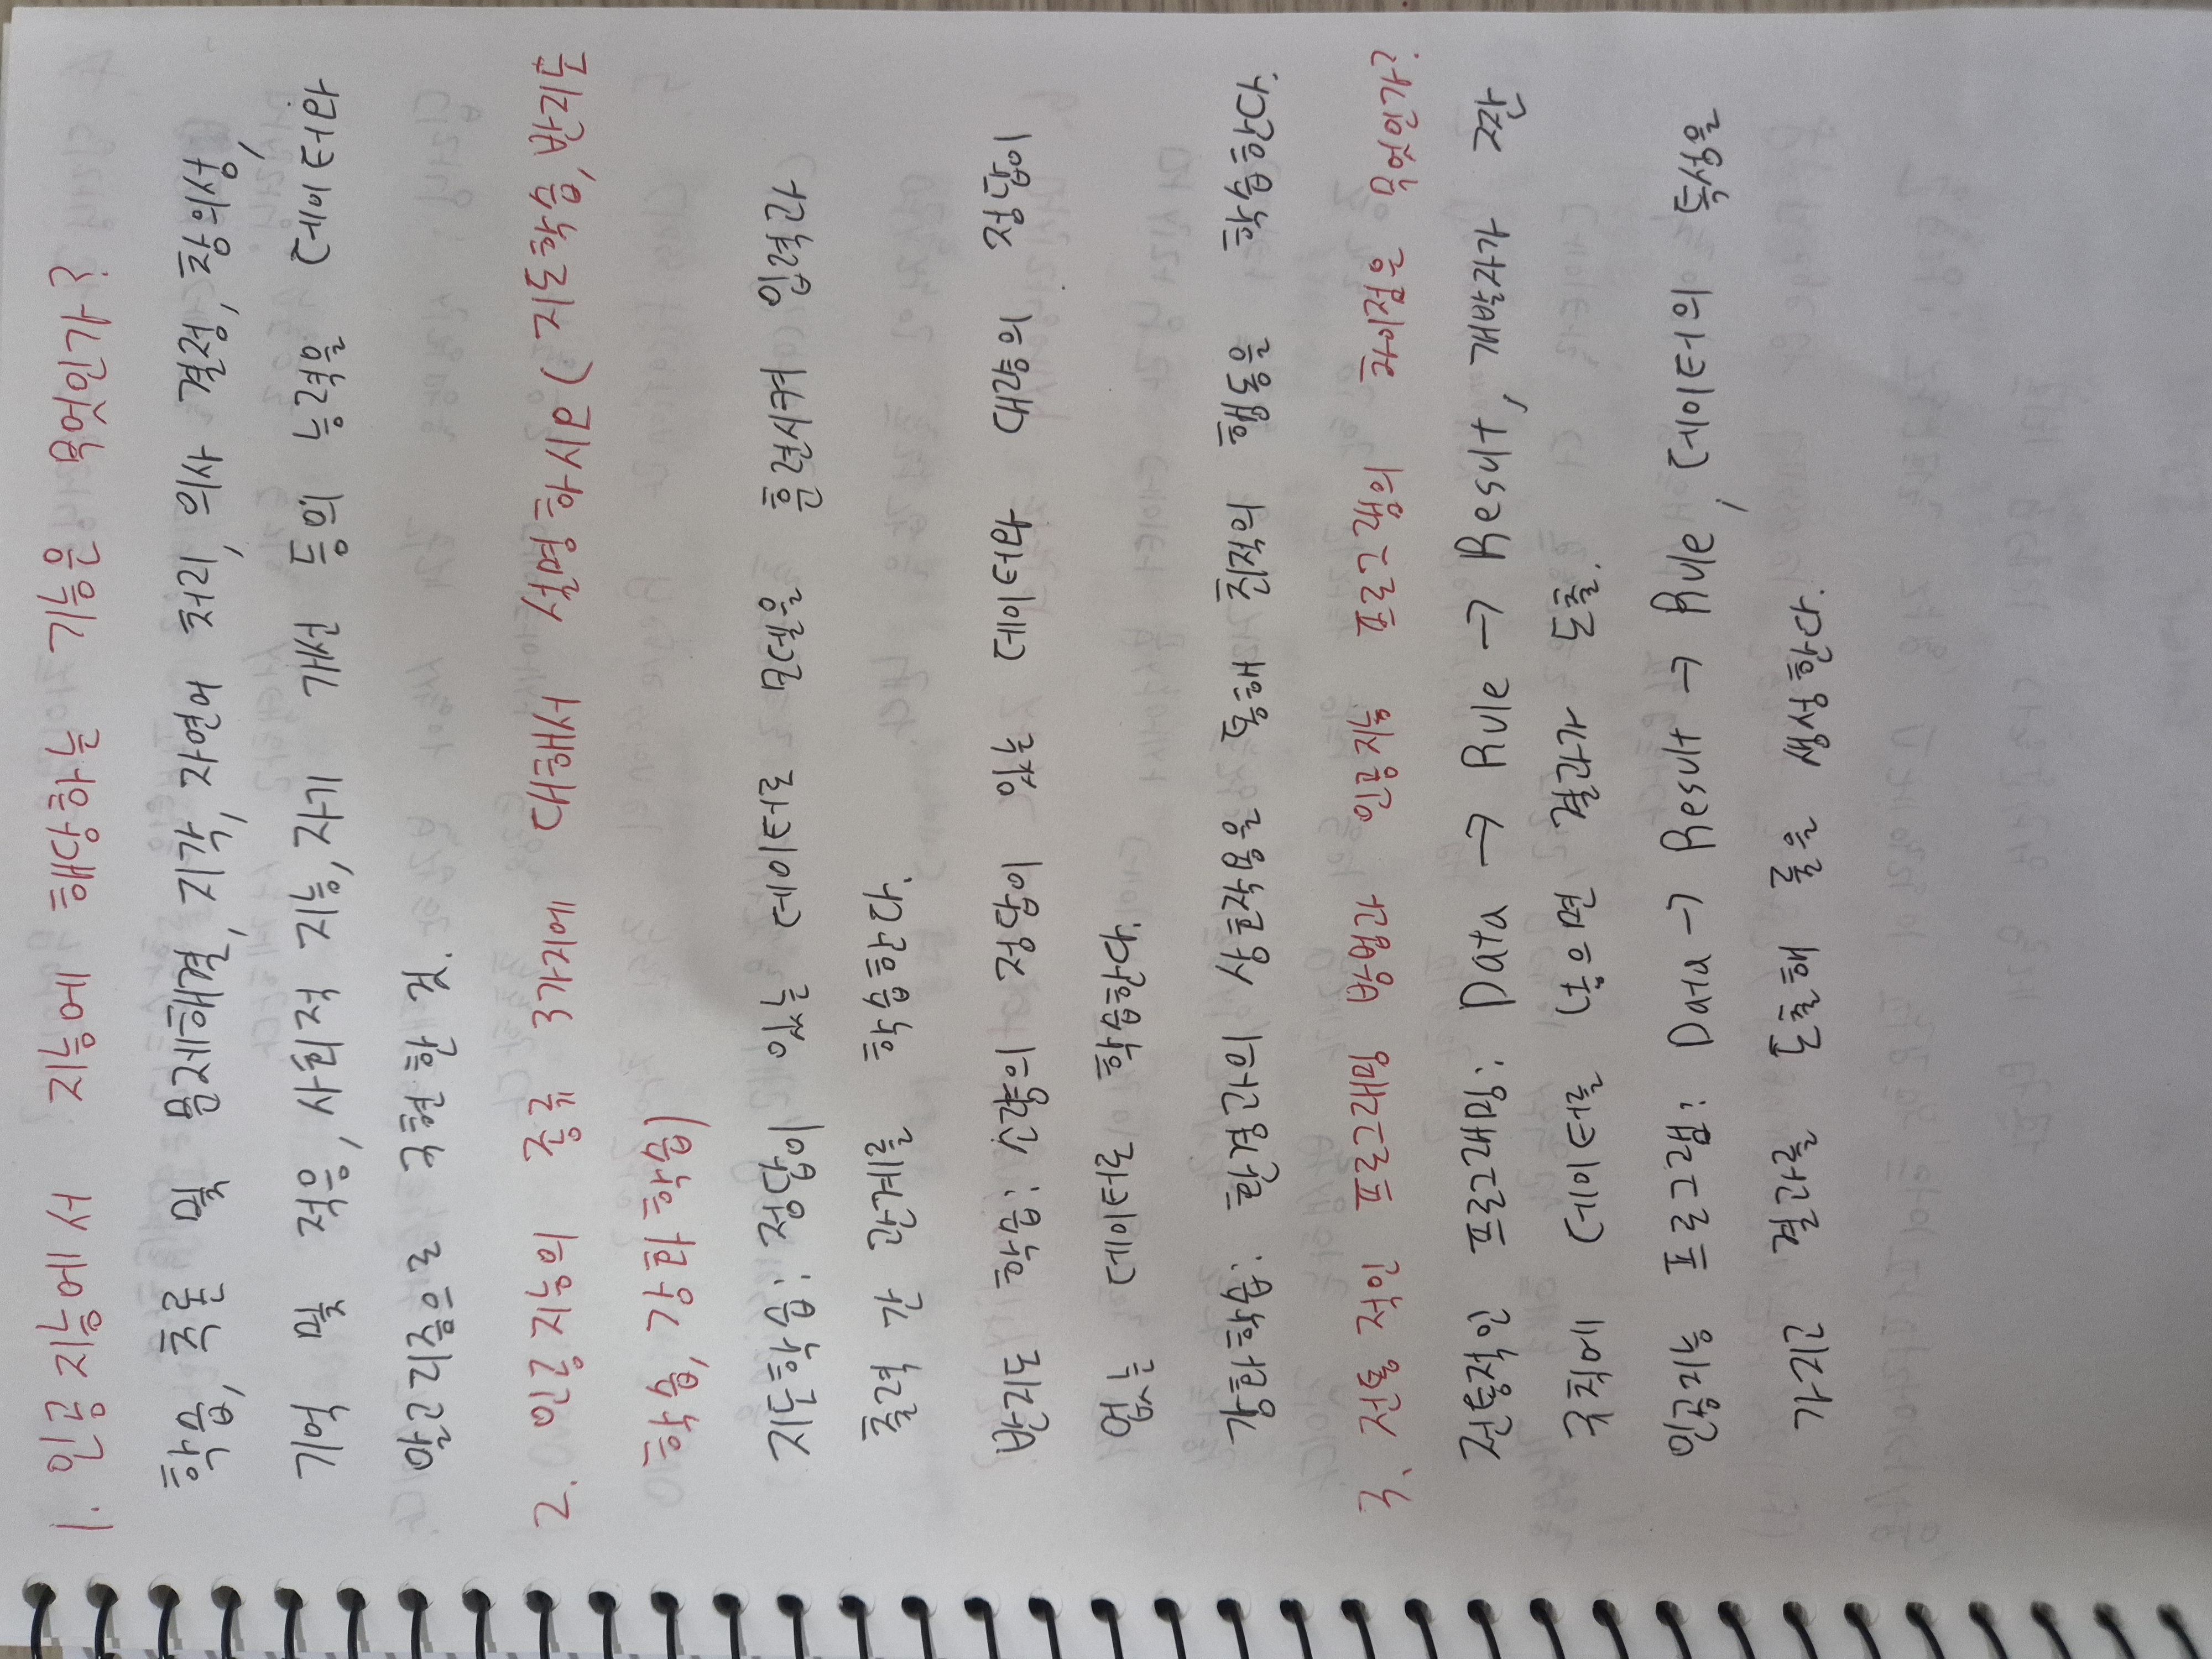 1. 인공지능에서 지능에 해당하는 기능은 무엇인가?
학습, 추론 및 문제해결, 지각, 자연어 처리, 의사 결정, 창의성,
기억 및 적응, 사회적 지능, 자기 개선 등의 능력을 데이터와
알고리즘으로 구현한 것.
2. 인공지능의 종류 3가지에 대해서 설명하시오(지도학습, 반지도
학습, 강화학습)
지도학습: 정답이 있는 데이터로 모델을 훈련시켜 입력과
출력 간 관계를 학습한다.
반지도 학습: 소량의 정답이 있는 데이터와 대량의 정답이
없는 데이터로 학습한다.
강화학습: 환경과의 상호작용을 통해 최적의 행동을 학습한다.
3. 전통적인 프로그래밍 방법과 인공지능 프로그램의 차이점은 무엇인가?
전통적인 프로그래밍: Data → Rule → Result, 개발자가 짠
규칙에 데이터를 넣으면 결과가 도출.
인공지능 프로그램: Data → Result → Rule, 데이터의 특성을
가지고 결과를 도출해 룰을 생성한다.